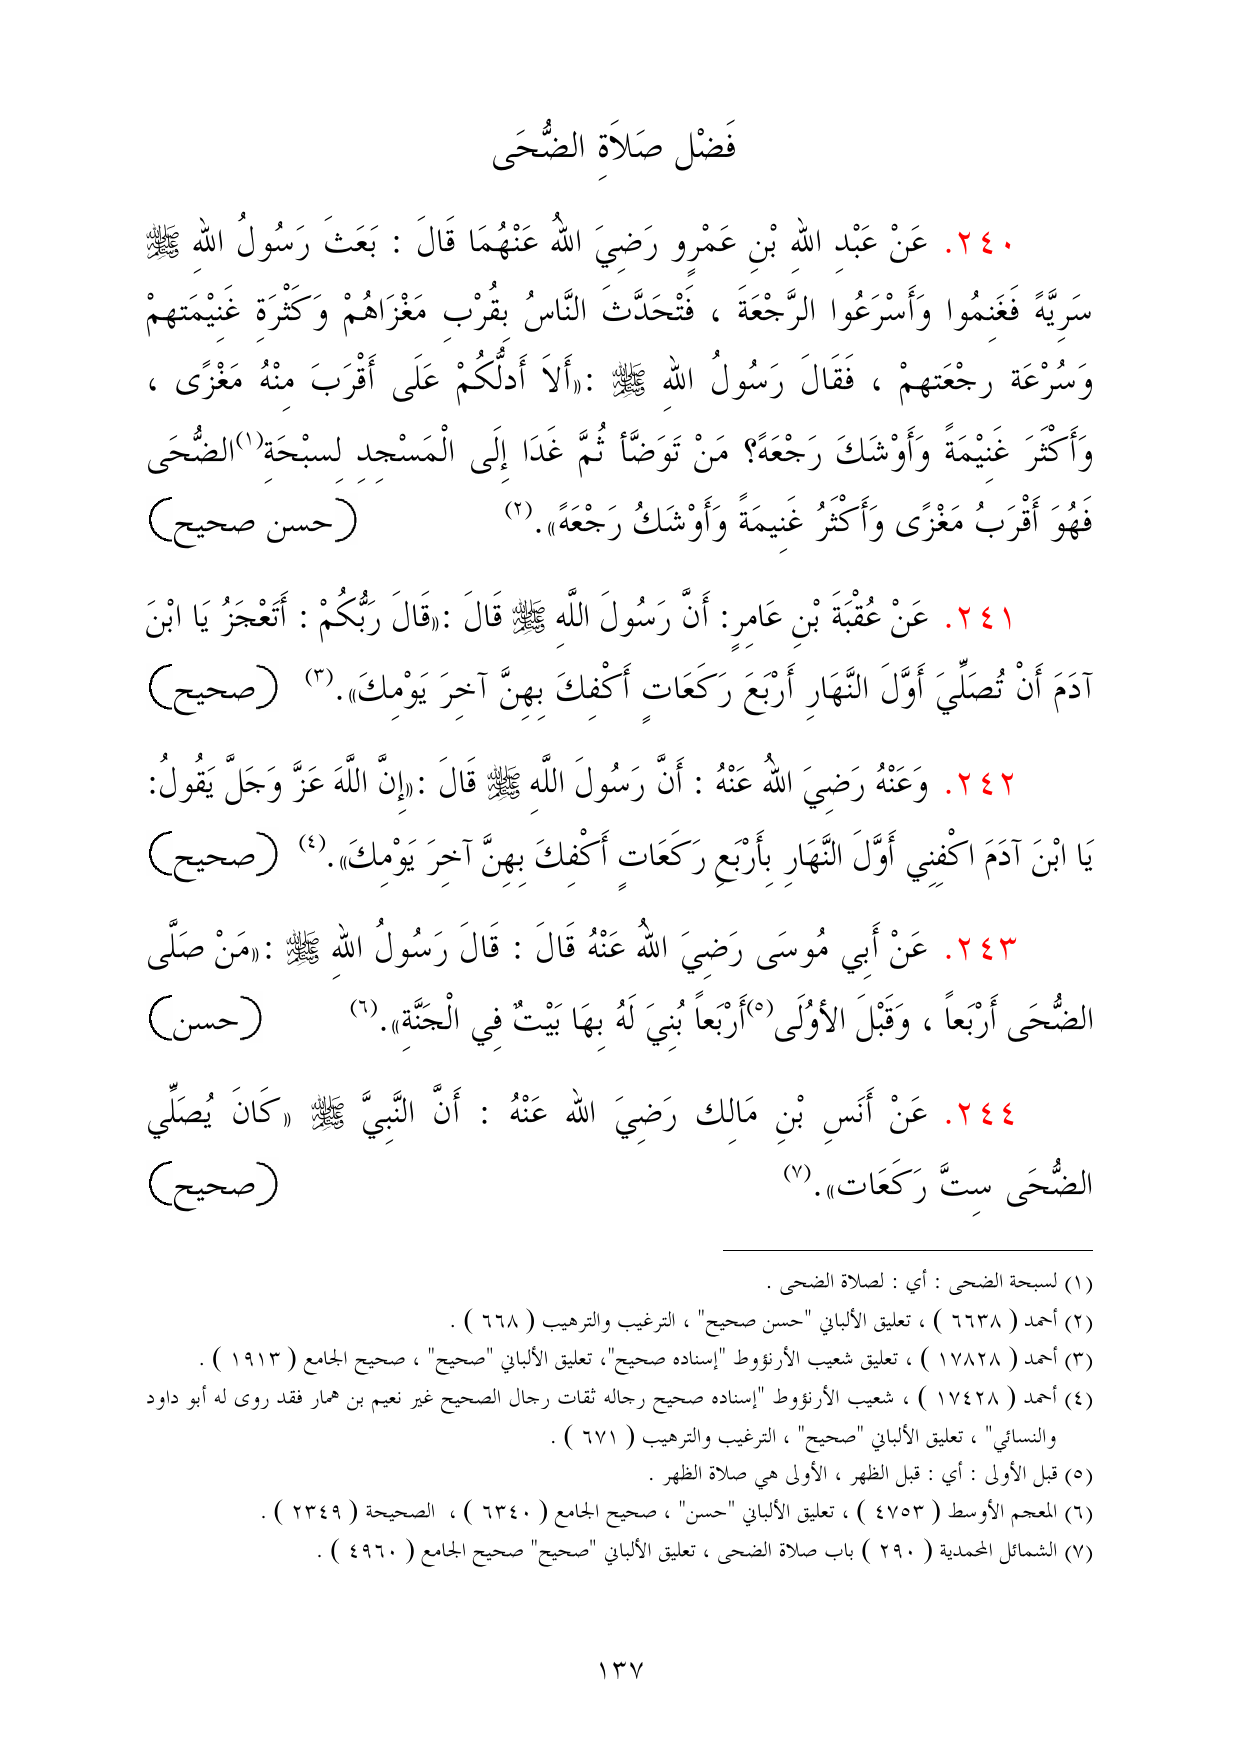 فَضْل صَلاَةِ الضُّحَى
٢٤٠. عَنْ عَبْدِ اللهِ بْنِ عَمْرٍو رَضِيَ اللهُ عَنْهُمَا قَالَ : بَعَثَ رَسُولُ اللهِ ﷺ
سَرِيَّةً فَغَنِمُوا وَأَسْرَعُوا الرَّجْعَةَ ، فَتْحَدَّثَ النَّاسُ بِقُرْبِ مَغْزَاهُمْ وَكَثْرَةِ غَنِيْمَتهِمْ
وَسُرْعَة رجْعَتهِمْ ، فَقَالَ رَسُولُ اللهِ ﷺ :«أَلاَ أَدلُّكُمْ عَلَى أَقْرَبَ مِنْهُ مَغْزًى ،
وَأَكْثَرَ غَنِيْمَةً وَأَوْشَكَ رَجْعَةً؟ مَنْ تَوَضَّأ ثُمَّ غَدَا إِلَى الْمَسْجِدِ لِسبْحَةِ(١)الضُّحَى
فَهُوَ أَقْرَبُ مَغْزًى وَأَكْثَرُ غَنِيمَةً وَأَوْشَكُ رَجْعَةً».(٢) (حسن صحيح)
٢٤١. عَنْ عُقْبَةَ بْنِ عَامِرٍ: أَنَّ رَسُولَ اللَّهِ ﷺ قَالَ :«قَالَ رَبُّكُمْ : أَتَعْجَزُ يَا ابْنَ
آدَمَ أَنْ تُصَلِّيَ أَوَّلَ النَّهَارِ أَرْبَعَ رَكَعَاتٍ أَكْفِكَ بِهِنَّ آخِرَ يَوْمِكَ».(٣) (صحيح)
٢٤٢. وَعَنْهُ رَضِيَ اللهُ عَنْهُ : أَنَّ رَسُولَ اللَّهِ ﷺ قَالَ :«إِنَّ اللَّهَ عَزَّ وَجَلَّ يَقُولُ:
يَا ابْنَ آدَمَ اكْفِنِي أَوَّلَ النَّهَارِ بِأَرْبَعِ رَكَعَاتٍ أَكْفِكَ بِهِنَّ آخِرَ يَوْمِكَ».(٤) (صحيح)
٢٤٣. عَنْ أَبِي مُوسَى رَضِيَ اللهُ عَنْهُ قَالَ : قَالَ رَسُولُ اللهِ ﷺ :«مَنْ صَلَّى
الضُّحَى أَرْبَعاً ، وَقَبْلَ الأوُلَى(٥)أَرْبَعاً بُنِيَ لَهُ بِهَا بَيْتٌ فِي الْجَنَّةِ».(٦) (حسن)
٢٤٤. عَنْ أَنَسِ بْنِ مَالِك رَضِيَ الله عَنْهُ : أَنَّ النَّبِيَّ ﷺ «كَانَ يُصَلِّي
الضُّحَى سِتَّ رَكَعَات».(٧) (صحيح)
(١) لسبحة الضحى : أي : لصلاة الضحى .
(٢) أحمد ( ٦٦٣٨ ) ، تعليق الألباني "حسن صحيح" ، الترغيب والترهيب ( ٦٦٨ ) .
(٣) أحمد ( ١٧٨٢٨ ) ، تعليق شعيب الأرنؤوط "إسناده صحيح"، تعليق الألباني "صحيح" ، صحيح الجامع ( ١٩١٣ ) .
(٤) أحمد ( ١٧٤٢٨ ) ، شعيب الأرنؤوط "إسناده صحيح رجاله ثقات رجال الصحيح غير نعيم بن همار فقد روى له أبو داود
والنسائي" ، تعليق الألباني "صحيح" ، الترغيب والترهيب ( ٦٧١ ) .
(٥) قبل الأولى : أي : قبل الظهر ، الأولى هي صلاة الظهر .
(٦) المعجم الأوسط ( ٤٧٥٣ ) ، تعليق الألباني "حسن" ، صحيح الجامع ( ٦٣٤٠ ) ، الصحيحة ( ٢٣٤٩ ) .
(٧) الشمائل المحمدية ( ٢٩٠ ) باب صلاة الضحى ، تعليق الألباني "صحيح" صحيح الجامع ( ٤٩٦٠ ) .
١٣٧